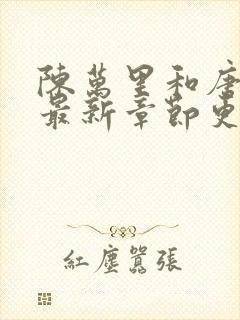 陳萬里和唐
最新章節更
紅塵囂張